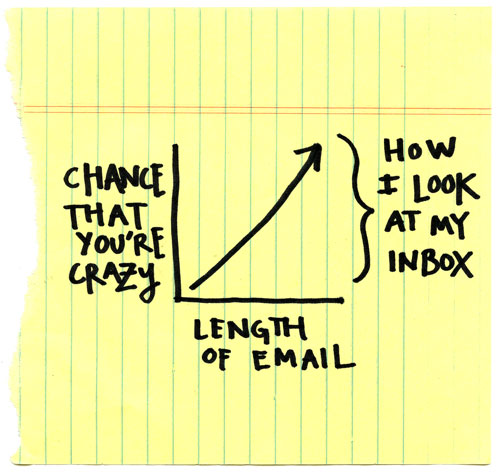 CHANCE
THAT
YOU'RE
CRAZY
LENGTH
OF EMAIL
HOW
I LOOK
AT MY
INBOX